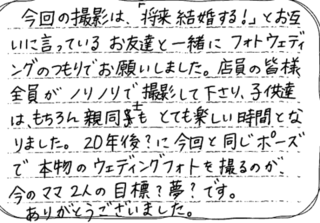 今回の撮影は、「将来結婚する!」とお互
いに言っている お友達と一緒に フォトウェディ
ングのつもりでお願いしました。店員の皆様
全員が ノリノリで 撮影して下さり、子供達
は、もちろん 親同士も とても楽しい時間とな
りました。 20年後?に今回と同じポーズ
で 本物の ウェディングフォトを 撮るのが、
今のママ 2人の 目標?夢?です。
ありがとうございました。